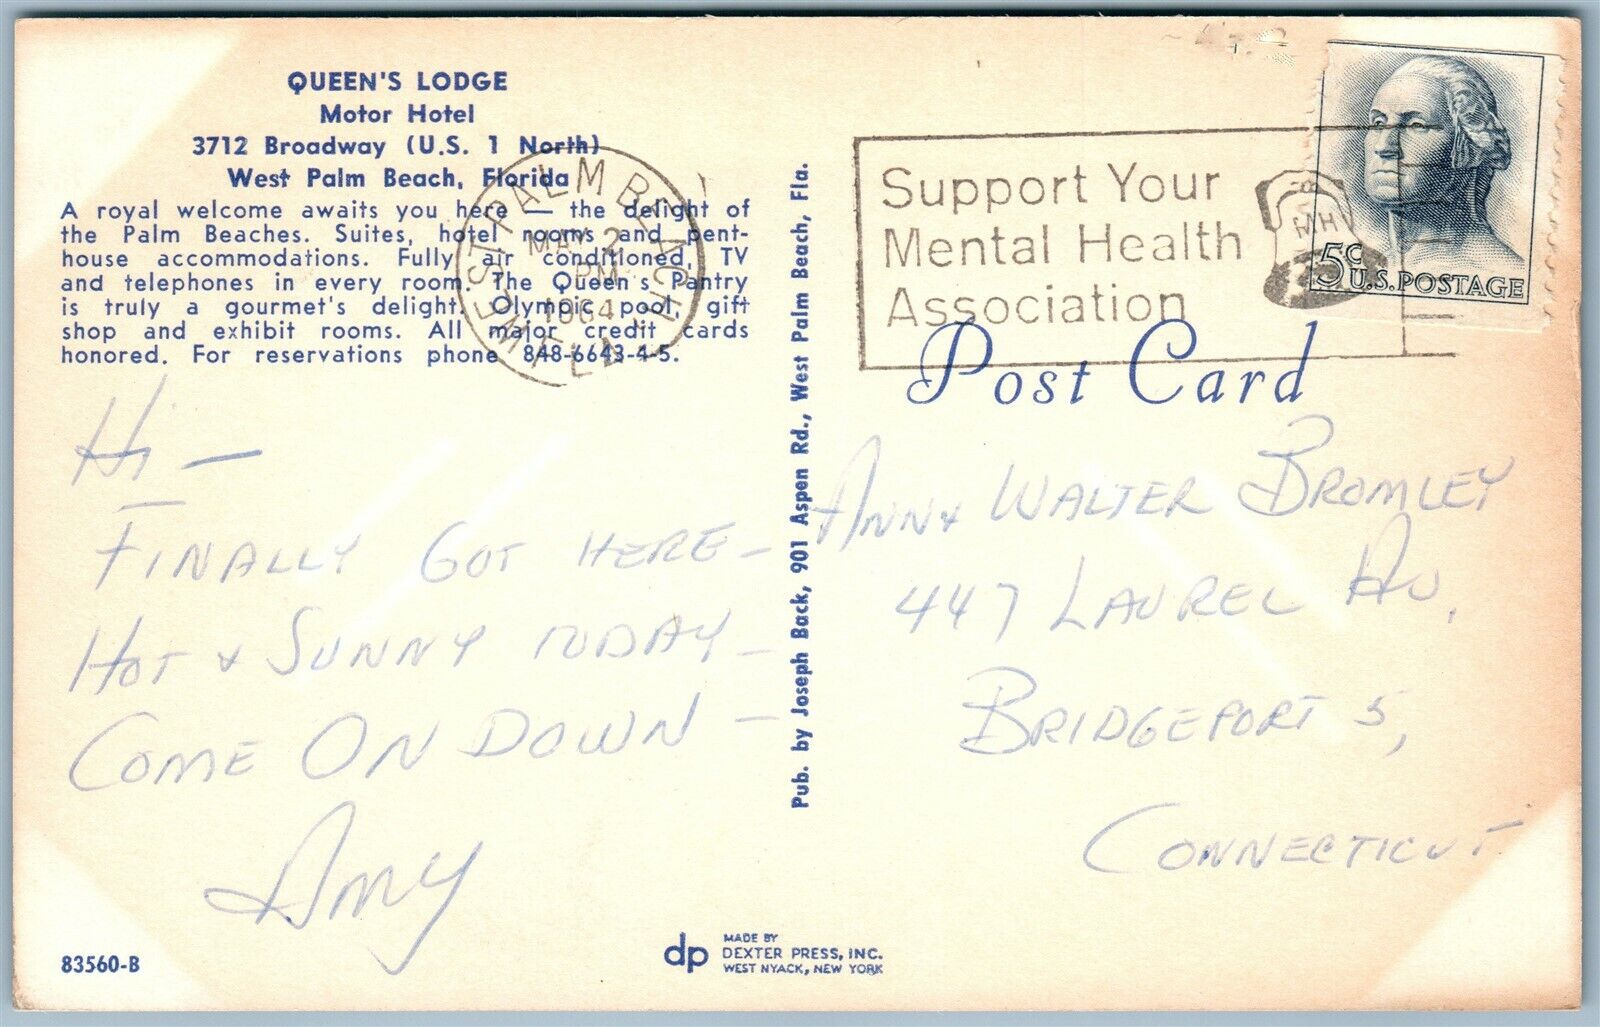 QUEEN'S LODGE
Motor Hotel
3712 Broadway (U.S. 1 North)
West Palm Beach, Florida
A royal welcome awaits you here — the delight of
the Palm Beaches. Suites, hotel rooms and pent-
house accommodations. Fully air conditioned, TV
and telephones in every room. The Queen's Pantry
is truly a gourmet's delight. Olympic pool, gift
shop and exhibit rooms. All major credit cards
honored. For reservations phone 848-6643-4-5.
WEST PALM BEACH FLA.
MAY 2
PM
1964
Hi —
FINALLY GOT HERE —
HOT & SUNNY TODAY —
COME ON DOWN —
AMY
83560-B
Pub. by Joseph Back, 901 Aspen Rd., West Palm Beach, Fla.
dp
MADE BY
DEXTER PRESS, INC.
WEST NYACK, NEW YORK
Support Your
Mental Health
Association
MH
5c
U.S. POSTAGE
Post Card
ANN & WALTER BROMLEY
447 LAUREL AV,
BRIDGEPORT 5,
CONNECTICUT